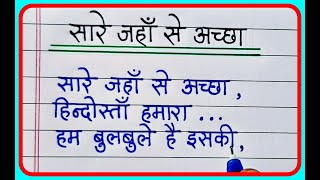 सारे जहाँ से अच्छा
सारे जहाँ से अच्छा,
हिन्दोस्ताँ हमारा ...
हम बुलबुले है इसकी,